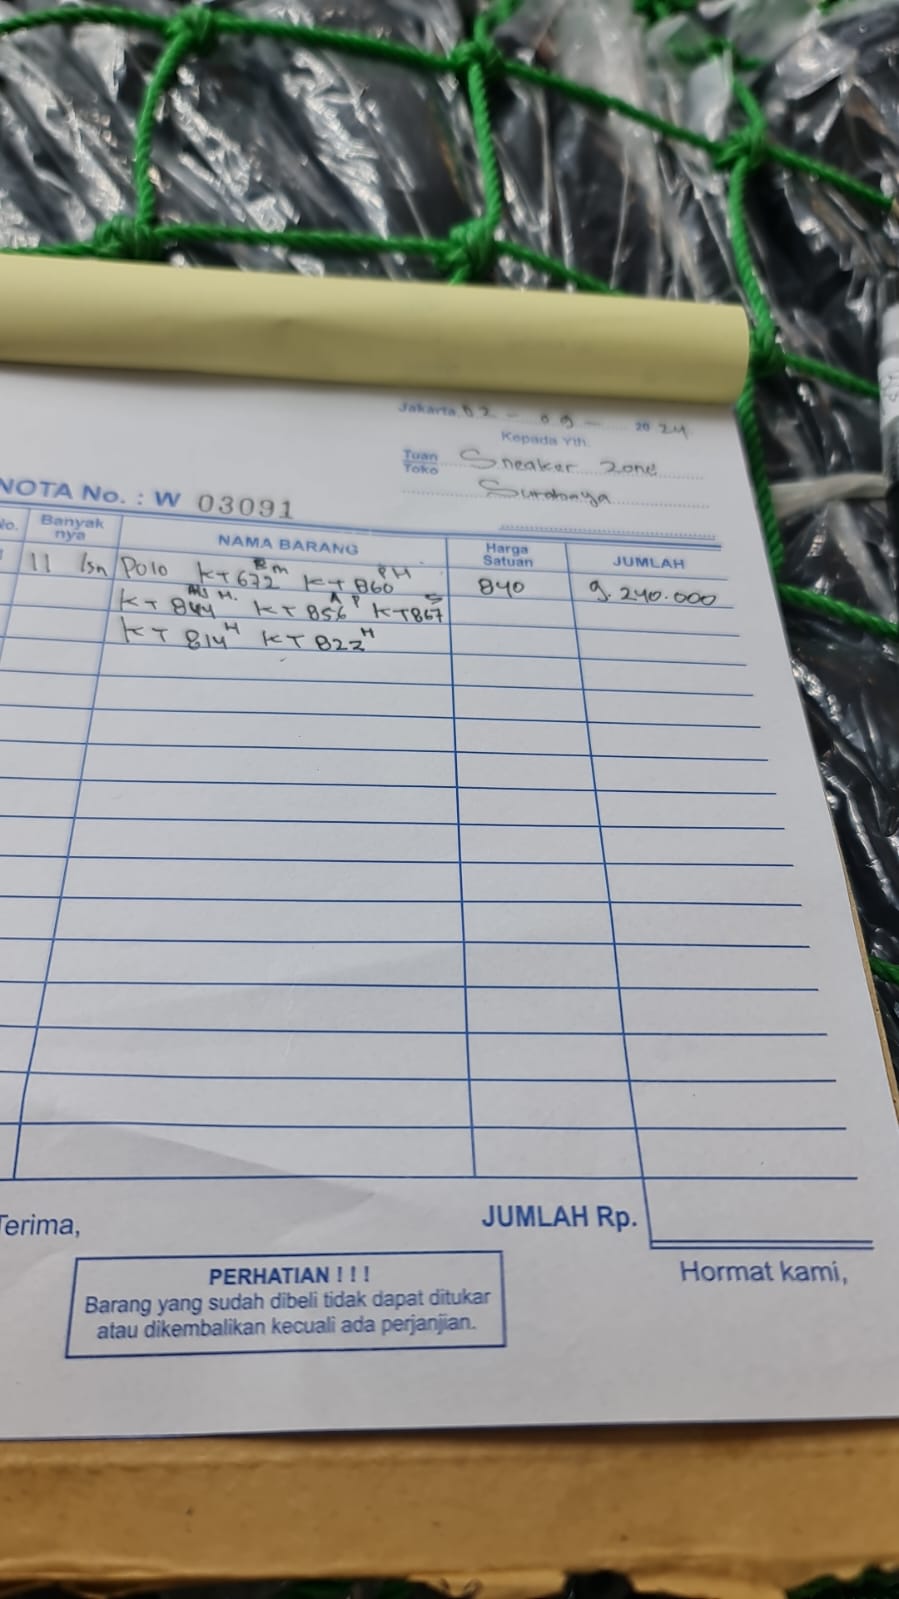 Jakarta, 02 - 09 - 2024
Kepada Yth.
Tuan
Toko
Sneaker Zone
Surabaya
NOTA No. : W 03091
No. Banyak nya NAMA BARANG Harga Satuan JUMLAH
11 lsn Polo KT 672 BM KT 860 PH 840 9.240.000
KT 844 H. KT 856 AP KT 867 S
KT 814 H KT 822 H
Terima,
JUMLAH Rp.
Hormat kami,
PERHATIAN ! ! !
Barang yang sudah dibeli tidak dapat ditukar
atau dikembalikan kecuali ada perjanjian.